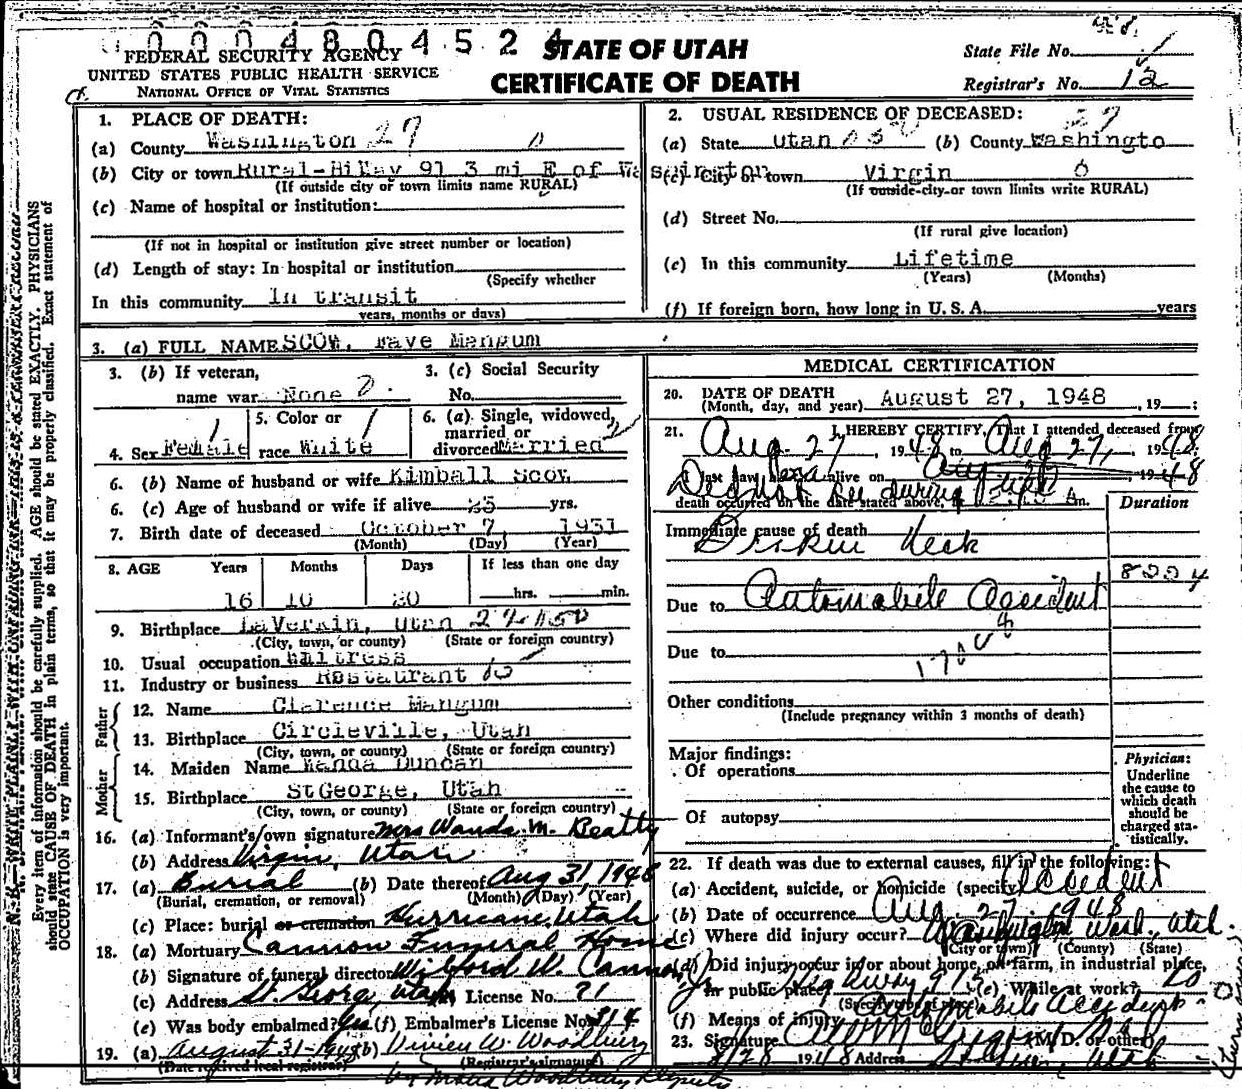 0 0 0 4 8 0 4 5 2 4
STATE OF UTAH
CERTIFICATE OF DEATH
FEDERAL SECURITY AGENCY
UNITED STATES PUBLIC HEALTH SERVICE
NATIONAL OFFICE OF VITAL STATISTICS
State File No.
Registrar's No. 12
1. PLACE OF DEATH:
(a) County Washington 27
(b) City or town Rural-HiWay 91 3 mi E of Washington
(If outside city or town limits name RURAL)
(c) Name of hospital or institution:
(If not in hospital or institution give street number or location)
(d) Length of stay: In hospital or institution
(Specify whether
In this community In transit
years, months or days)
2. USUAL RESIDENCE OF DECEASED: 27
(a) State Utah (b) County Washingto
(c) City or town Virgin
(If outside city or town limits write RURAL)
(d) Street No.
(If rural give location)
(e) In this community Lifetime
(Years) (Months)
(f) If foreign born, how long in U. S. A. years
3. (a) FULL NAME SCOW, Faye Mangum
3. (b) If veteran,
name war None
3. (c) Social Security
No.
4. Sex Female
5. Color or
race White
6. (a) Single, widowed,
married or
divorced Married
6. (b) Name of husband or wife Kimball Scow
6. (c) Age of husband or wife if alive 25 yrs.
7. Birth date of deceased October 7 1931
(Month) (Day) (Year)
8. AGE Years Months Days If less than one day
16 10 20 hrs. min.
9. Birthplace LaVerkin, Utah
(City, town, or county) (State or foreign country)
10. Usual occupation Waitress
11. Industry or business Restaurant
Father
12. Name Clarence Mangum
13. Birthplace Circleville, Utah
(City, town, or county) (State or foreign country)
Mother
14. Maiden Name Wanda Duncan
15. Birthplace StGeorge, Utah
(City, town, or county) (State or foreign country)
16. (a) Informant's own signature Mrs Wanda M. Beatty
(b) Address Virgin, Utah
17. (a) Burial (b) Date thereof Aug 31, 1948
(Burial, cremation, or removal) (Month) (Day) (Year)
(c) Place: burial or cremation Hurricane, Utah
18. (a) Mortuary Cannon Funeral Home
(b) Signature of funeral director Wilford W. Cannon Jr.
(c) Address St. George, Utah License No. 71
(e) Was body embalmed? Yes (f) Embalmer's License No. 314
19. (a) August 31-1948 (b) Vivien W. Woodbury
(Date received local registrar) (Registrar's signature)
by Woodbury Deputy
MEDICAL CERTIFICATION
20. DATE OF DEATH
(Month, day, and year) August 27, 1948, 19 ;
21. I HEREBY CERTIFY, That I attended deceased from
Aug. 27, 1948 to Aug 27, 1948
last saw alive on 1948
Did not see during life
death occurred on the date stated above, at m.
Duration
Immediate cause of death
Broken Neck
Due to Automobile Accident
Due to
Other conditions
(Include pregnancy within 3 months of death)
Major findings:
Of operations
Of autopsy
Physician:
Underline
the cause to
which death
should be
charged sta-
tistically.
22. If death was due to external causes, fill in the following:
(a) Accident, suicide, or homicide (specify) Accident
(b) Date of occurrence Aug. 27, 1948
(c) Where did injury occur? Washington Wash. Utah.
(City or town) (County) (State)
(d) Did injury occur in or about home, on farm, in industrial place,
in public place? Highway 91 (e) While at work? no
(Specify type of place)
(f) Means of injury Automobile Accident
23. Signature (M.D. or other)
8/28 1948 Address St George, Utah
N. B. WRITE PLAINLY WITH UNFADING INK—THIS IS A PERMANENT RECORD
Every item of information should be carefully supplied. AGE should be stated EXACTLY. PHYSICIANS
should state CAUSE OF DEATH in plain terms, so that it may be properly classified. Exact statement of
OCCUPATION is very important.